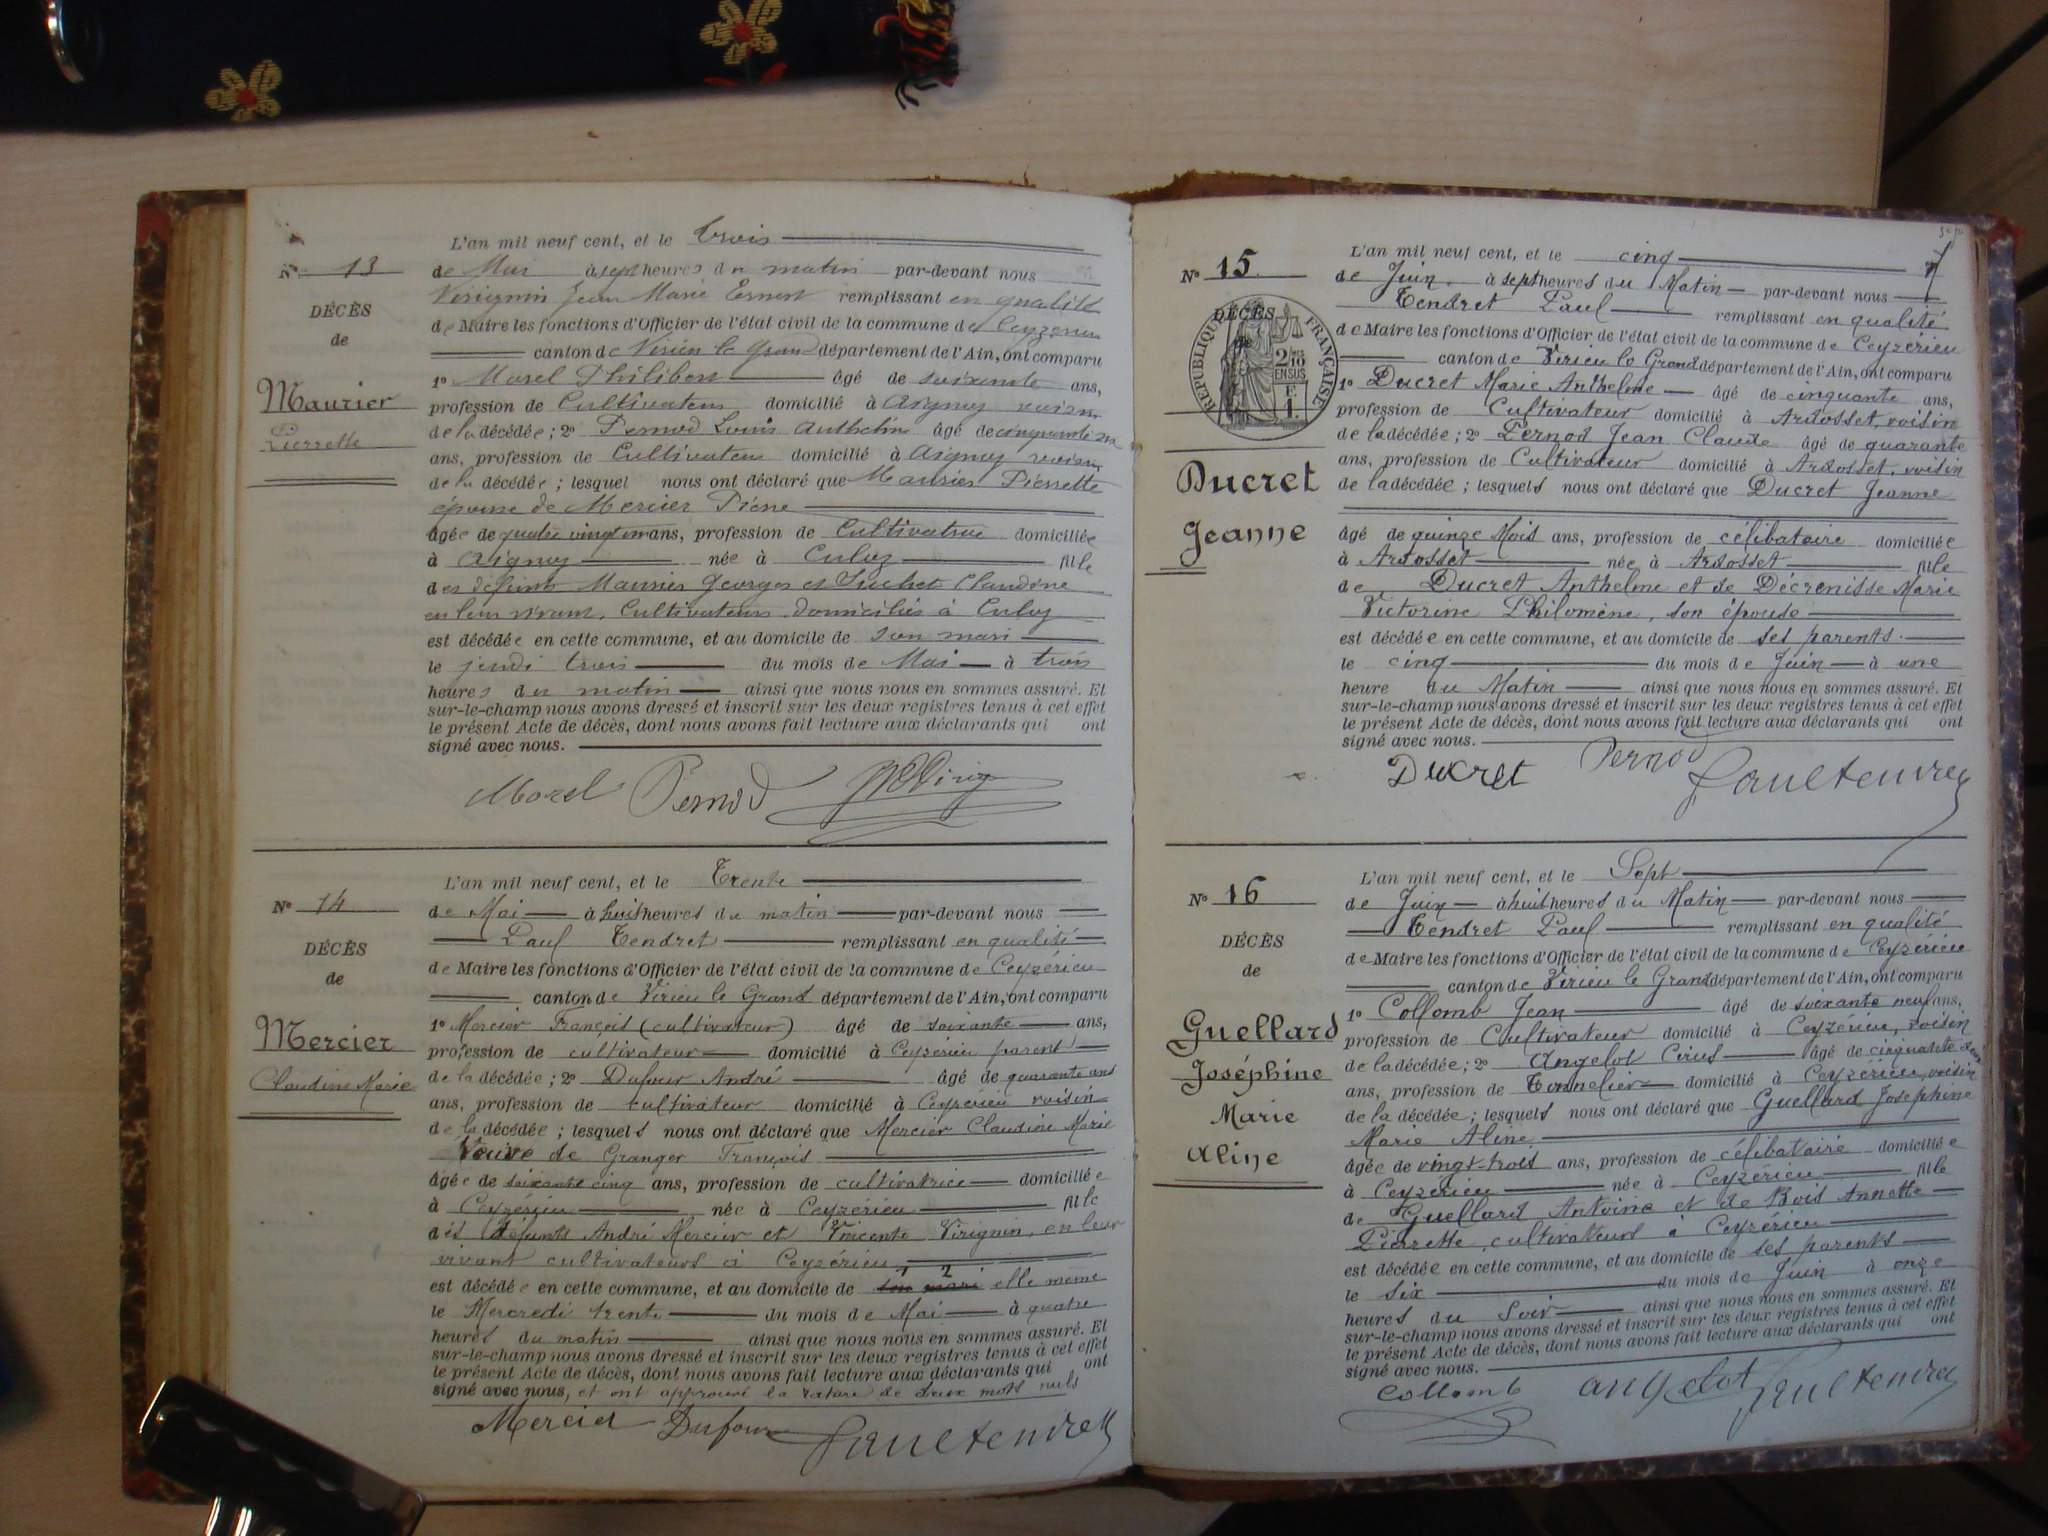 L'an mil neuf cent, et le trois
N° 13 de Mai à sept heures du matin par-devant nous
Virignin Jean Marie Ernest remplissant en qualité
DÉCÈS
de Maire les fonctions d'Officier de l'état civil de la commune de Ceyzérieu
de
canton de Virieu le Grand département de l'Ain, ont comparu
1° Morel Philibert âgé de soixante ans,
Maurier
profession de Cultivateur domicilié à Aignoz voisin
Pierrette
de la décédée; 2° Pernod Louis Anthelme âgé de cinquante
ans, profession de Cultivateur domicilié à Aignoz voisin
de la décédée; lesquels nous ont déclaré que Maurier Pierrette
épouse de Mercier Pierre
âgée de quatre vingt un ans, profession de Cultivatrice domiciliée
à Aignoz née à Culoz fille
des défunts Maurier Georges et Suchet Claudine
en leur vivant, Cultivateurs domiciliés à Culoz
est décédée en cette commune, et au domicile de son mari
le jeudi trois du mois de Mai à trois
heures du matin ainsi que nous nous en sommes assuré. Et
sur-le-champ nous avons dressé et inscrit sur les deux registres tenus à cet effet
le présent Acte de décès, dont nous avons fait lecture aux déclarants qui ont
signé avec nous.
Morel Pernod
L'an mil neuf cent, et le Trente
N° 14 de Mai à huit heures du matin par-devant nous
Paul Tendret remplissant en qualité
DÉCÈS
de Maire les fonctions d'Officier de l'état civil de la commune de Ceyzérieu
de
canton de Virieu le Grand département de l'Ain, ont comparu
1° Mercier François (cultivateur) âgé de soixante ans,
Mercier
profession de cultivateur domicilié à Ceyzérieu parent
Claudine Marie
de la décédée; 2° Dufour André âgé de quarante ans
ans, profession de cultivateur domicilié à Ceyzérieu voisin
de la décédée; lesquels nous ont déclaré que Mercier Claudine Marie
Veuve de Granger François
âgée de soixante cinq ans, profession de cultivatrice domiciliée
à Ceyzérieu née à Ceyzérieu fille
des défunts André Mercier et Vincente Virignin, en leur
vivant cultivateurs à Ceyzérieu
est décédée en cette commune, et au domicile de son mari 1 2 elle meme
le Mercredi trente du mois de Mai à quatre
heures du matin ainsi que nous nous en sommes assuré. Et
sur-le-champ nous avons dressé et inscrit sur les deux registres tenus à cet effet
le présent Acte de décès, dont nous avons fait lecture aux déclarants qui ont
signé avec nous, et ont approuvé la rature de deux mots nuls
Mercier Dufour Paul Tendret
L'an mil neuf cent, et le cinq 7
N° 15 de Juin à sept heures du Matin par-devant nous
Tendret Paul remplissant en qualité
DÉCÈS
de
RÉPUBLIQUE FRANÇAISE
2/10 EN SUS
E
1.
de Maire les fonctions d'Officier de l'état civil de la commune de Ceyzérieu
canton de Virieu le Grand département de l'Ain, ont comparu
1° Ducret Marie Anthelme âgé de cinquante ans,
profession de Cultivateur domicilié à Ardosset, voisin
de la décédée; 2° Pernod Jean Claude âgé de quarante
ans, profession de Cultivateur domicilié à Ardosset, voisin
Ducret
de la décédée; lesquels nous ont déclaré que Ducret Jeanne
Jeanne
âgé de quinze Mois ans, profession de célibataire domiciliée
à Ardosset née à Ardosset fille
de Ducret Anthelme et de Décrenisse Marie
Victorine Philomène, son épouse
est décédée en cette commune, et au domicile de ses parents.
le cinq du mois de Juin à une
heure du Matin ainsi que nous nous en sommes assuré. Et
sur-le-champ nous avons dressé et inscrit sur les deux registres tenus à cet effet
le présent Acte de décès, dont nous avons fait lecture aux déclarants qui ont
signé avec nous.
Ducret Pernod Paul Tendret
L'an mil neuf cent, et le Sept
N° 16 de Juin à huit heures du Matin par-devant nous
Tendret Paul remplissant en qualité
DÉCÈS
de Maire les fonctions d'Officier de l'état civil de la commune de Ceyzérieu
de
canton de Virieu le Grand département de l'Ain, ont comparu
1° Collomb Jean âgé de soixante neuf ans,
Guellard
profession de Cultivateur domicilié à Ceyzérieu, voisin
Joséphine
de la décédée; 2° Angelot Cirus âgé de cinquante deux
ans, profession de Tonnelier domicilié à Ceyzérieu, voisin
Marie
de la décédée; lesquels nous ont déclaré que Guellard Josephine
Marie Aline
Aline
âgée de vingt-trois ans, profession de célibataire domiciliée
à Ceyzérieu née à Ceyzérieu fille
de Guellard Antoine et de Bois Annette
Pierrette, cultivateurs à Ceyzérieu
est décédée en cette commune, et au domicile de ses parents
le six du mois de Juin à onze
heures du Soir ainsi que nous nous en sommes assuré. Et
sur-le-champ nous avons dressé et inscrit sur les deux registres tenus à cet effet
le présent Acte de décès, dont nous avons fait lecture aux déclarants qui ont
signé avec nous.
Collomb angelot Paul Tendret